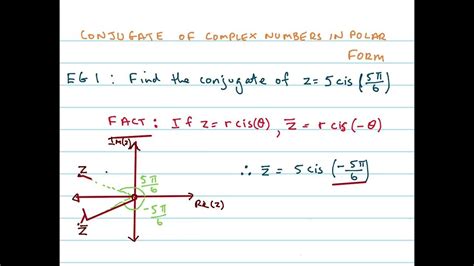 CONJUGATE OF COMPLEX NUMBERS IN POLAR
FORM
EG 1 : Find the conjugate of z = 5 cis (5π/6)
FACT : If z = r cis(θ), z̅ = r cis(-θ)
Im(z)
z
5π/6
∴ z̅ = 5 cis (-5π/6)
-5π/6
Re(z)
z̅